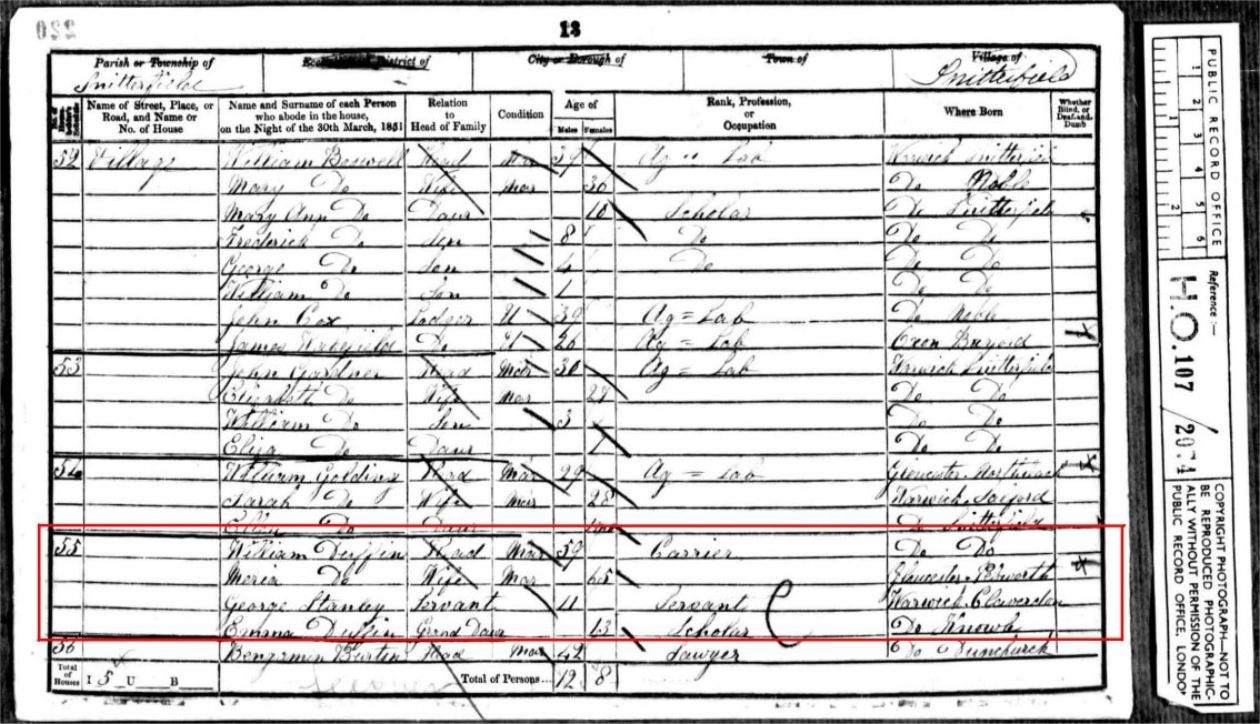 220
13
Parish or Township of
Ecclesiastical District of
City or Borough of
Town of
Village of
Snitterfield
Snitterfield
No. of House-holder's Schedule
Name of Street, Place, or Road, and Name or No. of House
Name and Surname of each Person who abode in the house, on the Night of the 30th March, 1851
Relation to Head of Family
Condition
Age of
Males Females
Rank, Profession, or Occupation
Where Born
Whether Blind, or Deaf-and-Dumb
52 Village William Boswell Head Mar 39 Ag " Lab Warwick Snitterfield
Mary Do Wife Mar 30 Do
Mary Ann Do Daur 10 Scholar Do Snitterfield
Frederick Do Son 8 Do Do Do
George Do Son 4 Do Do Do
William Do Son 1 Do Do
John Cox Lodger U 39 Ag = Lab Do
James Do U 20 Ag = Lab Oxon
53 John Gardner Head Mar 30 Ag = Lab Warwick Snitterfield
Elizabeth Do Wife Mar 28 Do Do
William Do Son 3 Do Do
Eliza Do Daur 1 Do Do
54 William Golding Head Mar 29 Ag = Lab Gloucester
Sarah Do Wife Mar 28 Warwick
Do Daur Do Snitterfield
55 William Duffin Head Mar 59 Carrier Do Do
Maria Do Wife Mar 65 Gloucester Ebworth
George Stanley Servant 11 Servant Warwick Claverdon
Emma Duffin Grand Daur 13 Scholar Do Knowle
56 Benjamin Burtin Head Mar 42 Sawyer Do Dunchurch
Total of Houses I 5 U B Total of Persons... 12 8
PUBLIC RECORD OFFICE
1 2 3 4 5 6
1 2
Reference :—
H.O. 107 / 2074
COPYRIGHT PHOTOGRAPH—NOT TO
BE REPRODUCED PHOTOGRAPHIC-
ALLY WITHOUT PERMISSION OF THE
PUBLIC RECORD OFFICE, LONDON